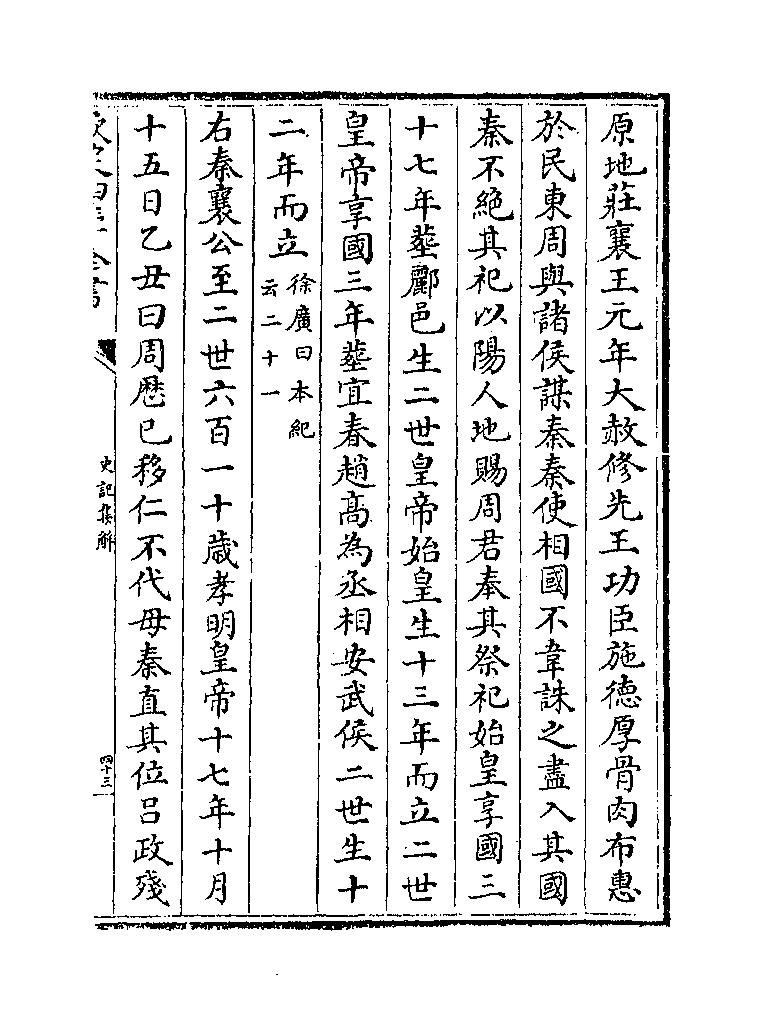 原地莊襄王元年大赦修先王功臣施德厚骨肉布惠
於民東周與諸侯謀秦秦使相國不韋誅之盡入其國
秦不絶其祀以陽人地賜周君奉其祭祀始皇享國三
十七年葬酈邑生二世皇帝始皇生十三年而立二世
皇帝享國三年葬宜春趙髙為丞相安武侯二世生十
二年而立徐廣曰本紀云二十一
右秦襄公至二世六百一十歲孝明皇帝十七年十月
十五日乙丑曰周歴已移仁不代母秦直其位吕政殘
欽定四庫全書
史記集解
四十三